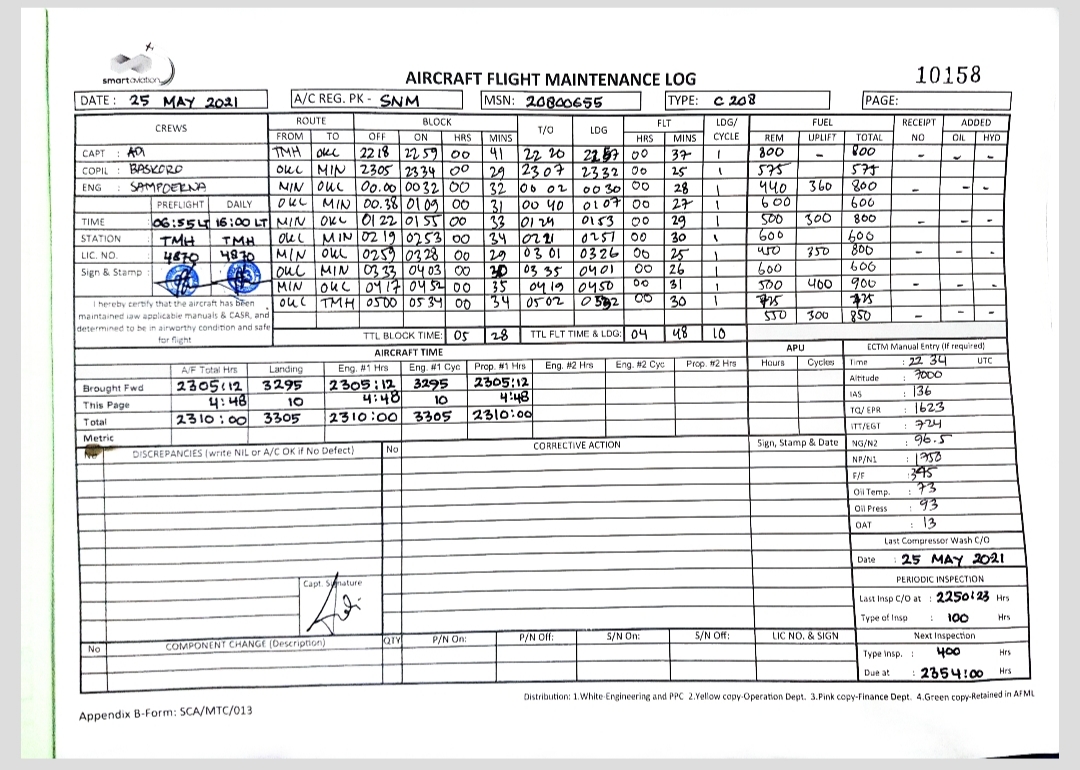 smartaviation
AIRCRAFT FLIGHT MAINTENANCE LOG
10158
DATE : 25 MAY 2021 A/C REG. PK - SNM MSN: 20800655 TYPE: C 208 PAGE:
CREWS ROUTE BLOCK T/O LDG FLT LDG/ CYCLE FUEL RECEIPT NO ADDED
FROM TO OFF ON HRS MINS HRS MINS REM UPLIFT TOTAL OIL HYD
CAPT : TMH OKC 2218 2259 00 41 22 20 2257 00 37 1 800 - 800 - - -
COPIL : BASKORO OKC MIN 2305 2334 00 29 2307 2332 00 25 1 575 575
ENG : SAMPOERNA MIN OKC 00.00 0032 00 32 00 02 0030 00 28 1 440 360 800 - - -
PREFLIGHT DAILY OKC MIN 00.38 0109 00 31 00 40 0107 00 27 1 600 600
TIME 06:55 LT 16:00 LT MIN OKC 0122 0155 00 33 0124 0153 00 29 1 500 300 800 - - -
STATION TMH TMH OKC MIN 0219 0253 00 34 0221 0251 00 30 1 600 600
LIC. NO. 4870 4870 MIN OKC 0259 0328 00 29 03 01 0326 00 25 1 450 350 800 - - -
Sign & Stamp : OKC MIN 0333 0403 00 30 03 35 0401 00 26 1 600 600
MIN OKC 0417 0452 00 35 0419 0450 00 31 1 500 400 900 - - -
OKC TMH 0500 0534 00 34 0502 0532 00 30 1 725 725
550 300 850 - - -
I hereby certify that the aircraft has been
maintained iaw applicable manuals & CASR, and
determined to be in airworthy condition and safe
for flight
TTL BLOCK TIME: 05 28 TTL FLT TIME & LDG: 04 48 10
AIRCRAFT TIME APU ECTM Manual Entry (if required)
A/F Total Hrs Landing Eng. #1 Hrs Eng. #1 Cyc Prop. #1 Hrs Eng. #2 Hrs Eng. #2 Cyc Prop. #2 Hrs Hours Cycles
Brought Fwd 2305:12 3295 2305:12 3295 2305:12
This Page 4:48 10 4:48 10 4:48
Total 2310:00 3305 2310:00 3305 2310:00
Metric
Time : 22 34 UTC
Altitude : 7000
IAS : 136
TQ/ EPR : 1623
ITT/EGT : 724
NG/N2 : 96.5
NP/N1 : 1750
F/F : 345
Oil Temp. : 73
Oil Press : 93
OAT : 13
No DISCREPANCIES (write NIL or A/C OK if No Defect) No CORRECTIVE ACTION Sign, Stamp & Date
Last Compressor Wash C/O
Date : 25 MAY 2021
PERIODIC INSPECTION
Last Insp C/O at : 2250:23 Hrs
Type of Insp : 100 Hrs
Next Inspection
Type Insp. : 400 Hrs
Due at : 2354:00 Hrs
Capt. Signature
No COMPONENT CHANGE (Description) QTY P/N On: P/N Off: S/N On: S/N Off: LIC NO. & SIGN
Distribution: 1.White-Engineering and PPC 2.Yellow copy-Operation Dept. 3.Pink copy-Finance Dept. 4.Green copy-Retained in AFML
Appendix B-Form: SCA/MTC/013